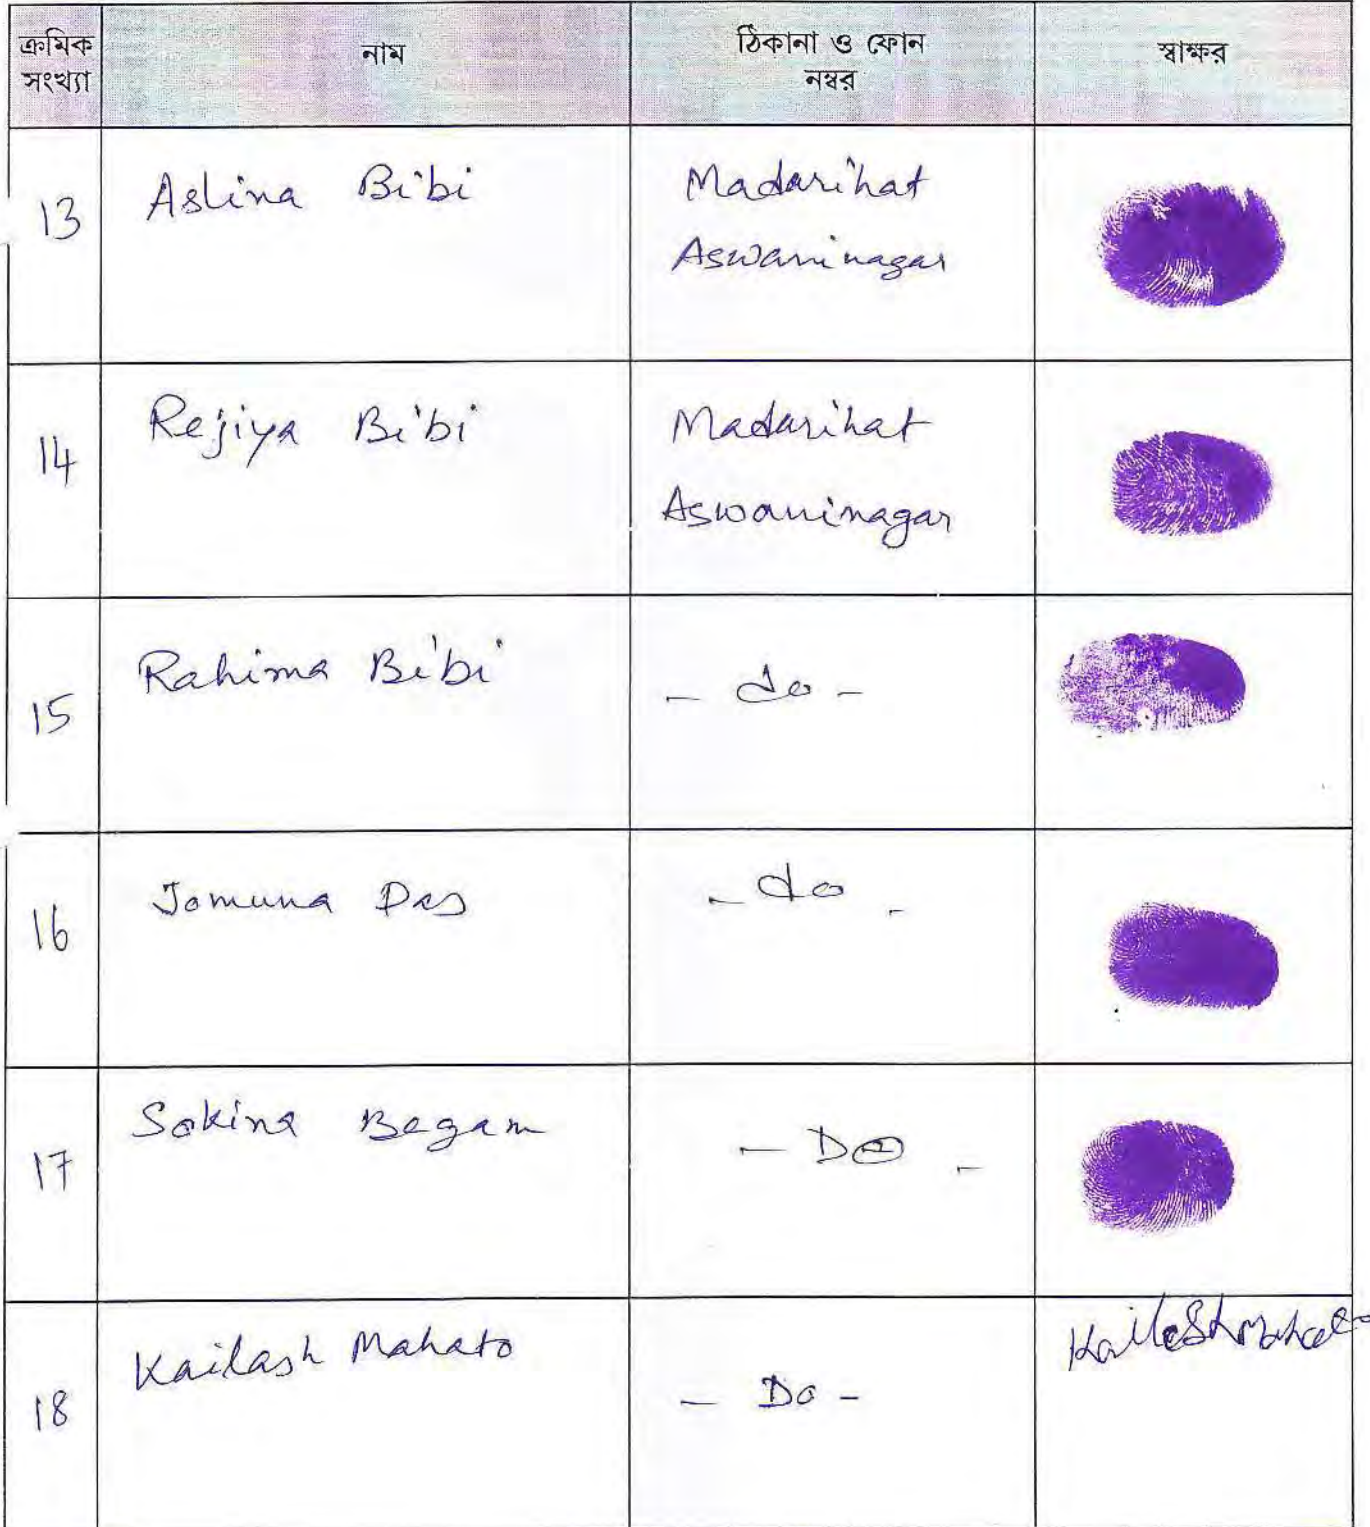 ক্রমিক সংখ্যা
নাম
ঠিকানা ও ফোন নম্বর
স্বাক্ষর
13 Aslina Bibi Madarihat
Aswaninagar
14 Rejiya Bibi Madarihat
Aswaninagar
15 Rahima Bibi - do -
16 Jomuna Das - do -
17 Sokina Begam - Do -
18 Kailash Mahato - Do - Kailash Mahato